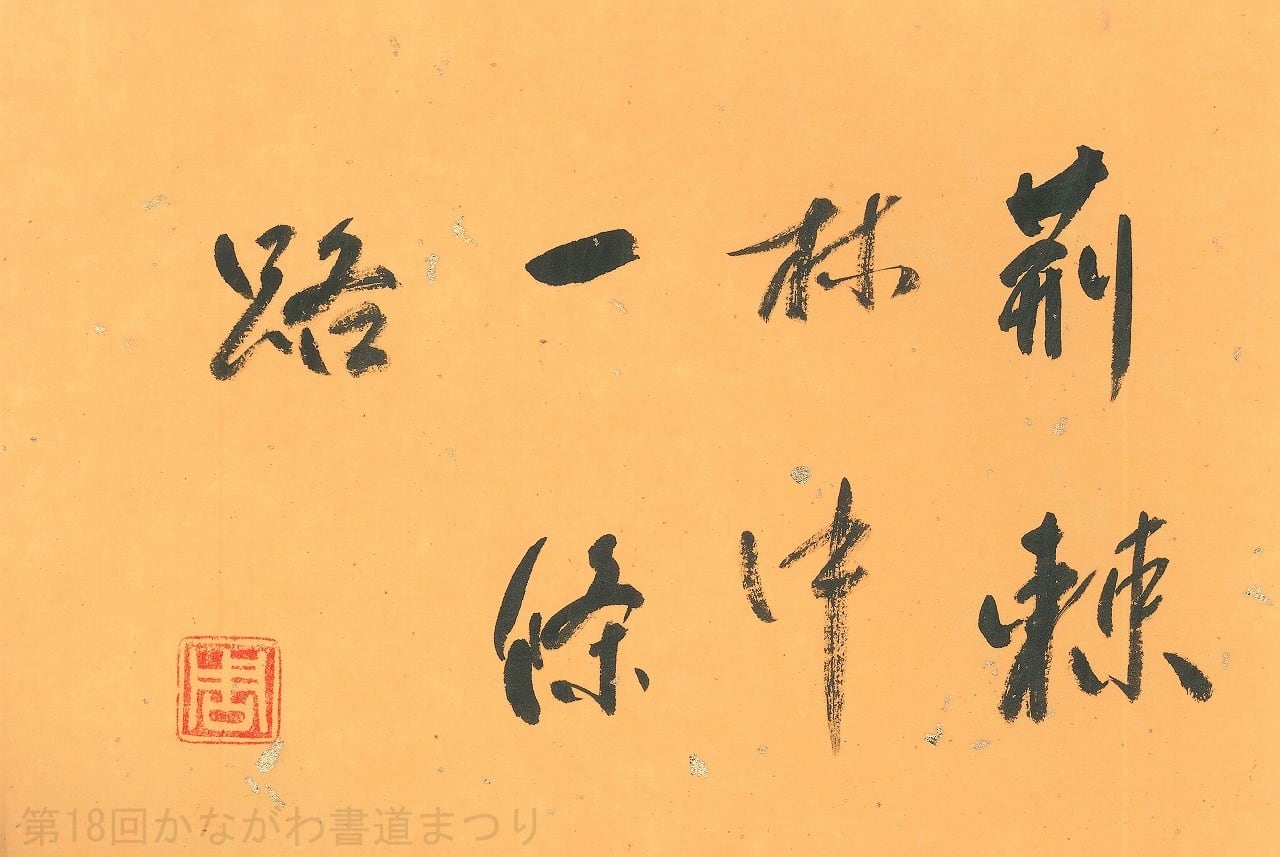 荊棘
林中
一條
路
周
第18回かながわ書道まつり